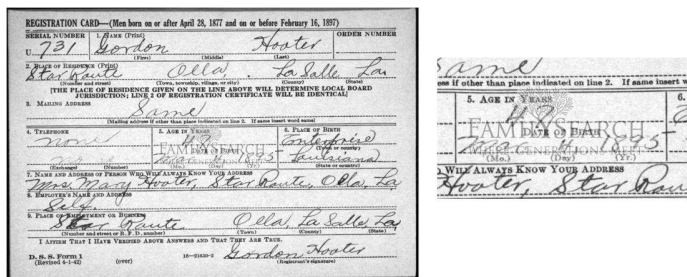 REGISTRATION CARD—(Men born on or after April 28, 1877 and on or before February 16, 1897)
SERIAL NUMBER 1. NAME (Print) ORDER NUMBER
U 731 Gordon Hooter
(First) (Middle) (Last)
2. PLACE OF RESIDENCE (Print)
Star Route Olla, La Salle La
(Number and street) (Town, township, village, or city) (County) (State)
[THE PLACE OF RESIDENCE GIVEN ON THE LINE ABOVE WILL DETERMINE LOCAL BOARD
JURISDICTION; LINE 2 OF REGISTRATION CERTIFICATE WILL BE IDENTICAL]
3. MAILING ADDRESS
Same
(Mailing address if other than place indicated on line 2. If same insert word same)
4. TELEPHONE 5. AGE IN YEARS 6. PLACE OF BIRTH
none Enterprise
DATE OF BIRTH (Town or county)
Louisiana
(Exchange) (Number) (Mo.) (Day) (Yr.) (State or country)
7. NAME AND ADDRESS OF PERSON WHO WILL ALWAYS KNOW YOUR ADDRESS
Mrs. Mary Hooter, Star Route, Olla, La
8. EMPLOYER'S NAME AND ADDRESS
Self
9. PLACE OF EMPLOYMENT OR BUSINESS
Star Route Olla, La Salle La
(Number and street or R. F. D. number) (Town) (County) (State)
I AFFIRM THAT I HAVE VERIFIED ABOVE ANSWERS AND THAT THEY ARE TRUE.
D. S. S. Form 1
(Revised 4-1-42) (over) 16—21630-2 Gordon Hooter
(Registrant's signature)
Same
ess if other than place indicated on line 2. If same insert w
5. AGE IN YEARS 6.
FAMILYSEARCH
DATE OF BIRTH
(Mo.) (Day) (Yr.)
WILL ALWAYS KNOW YOUR ADDRESS
Hooter, Star Rou